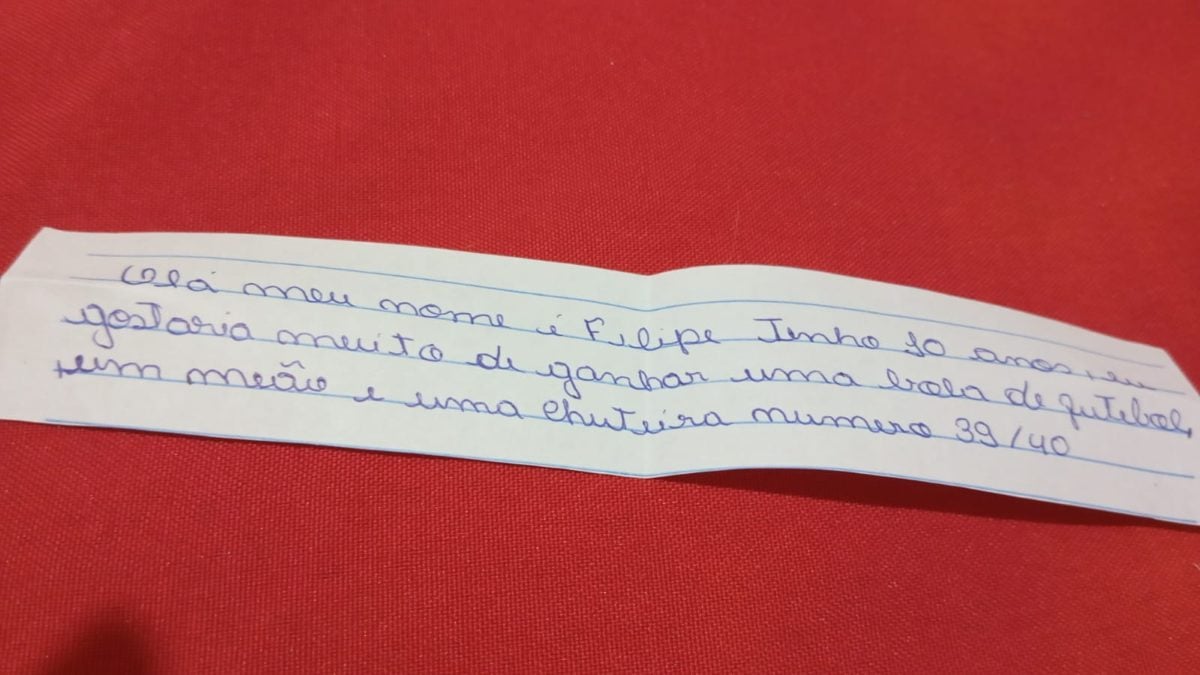 Olá meu nome é Filipe Tenho 10 anos, eu
gostaria muito de ganhar uma bola de futebol,
um meião e uma chuteira numero 39/40